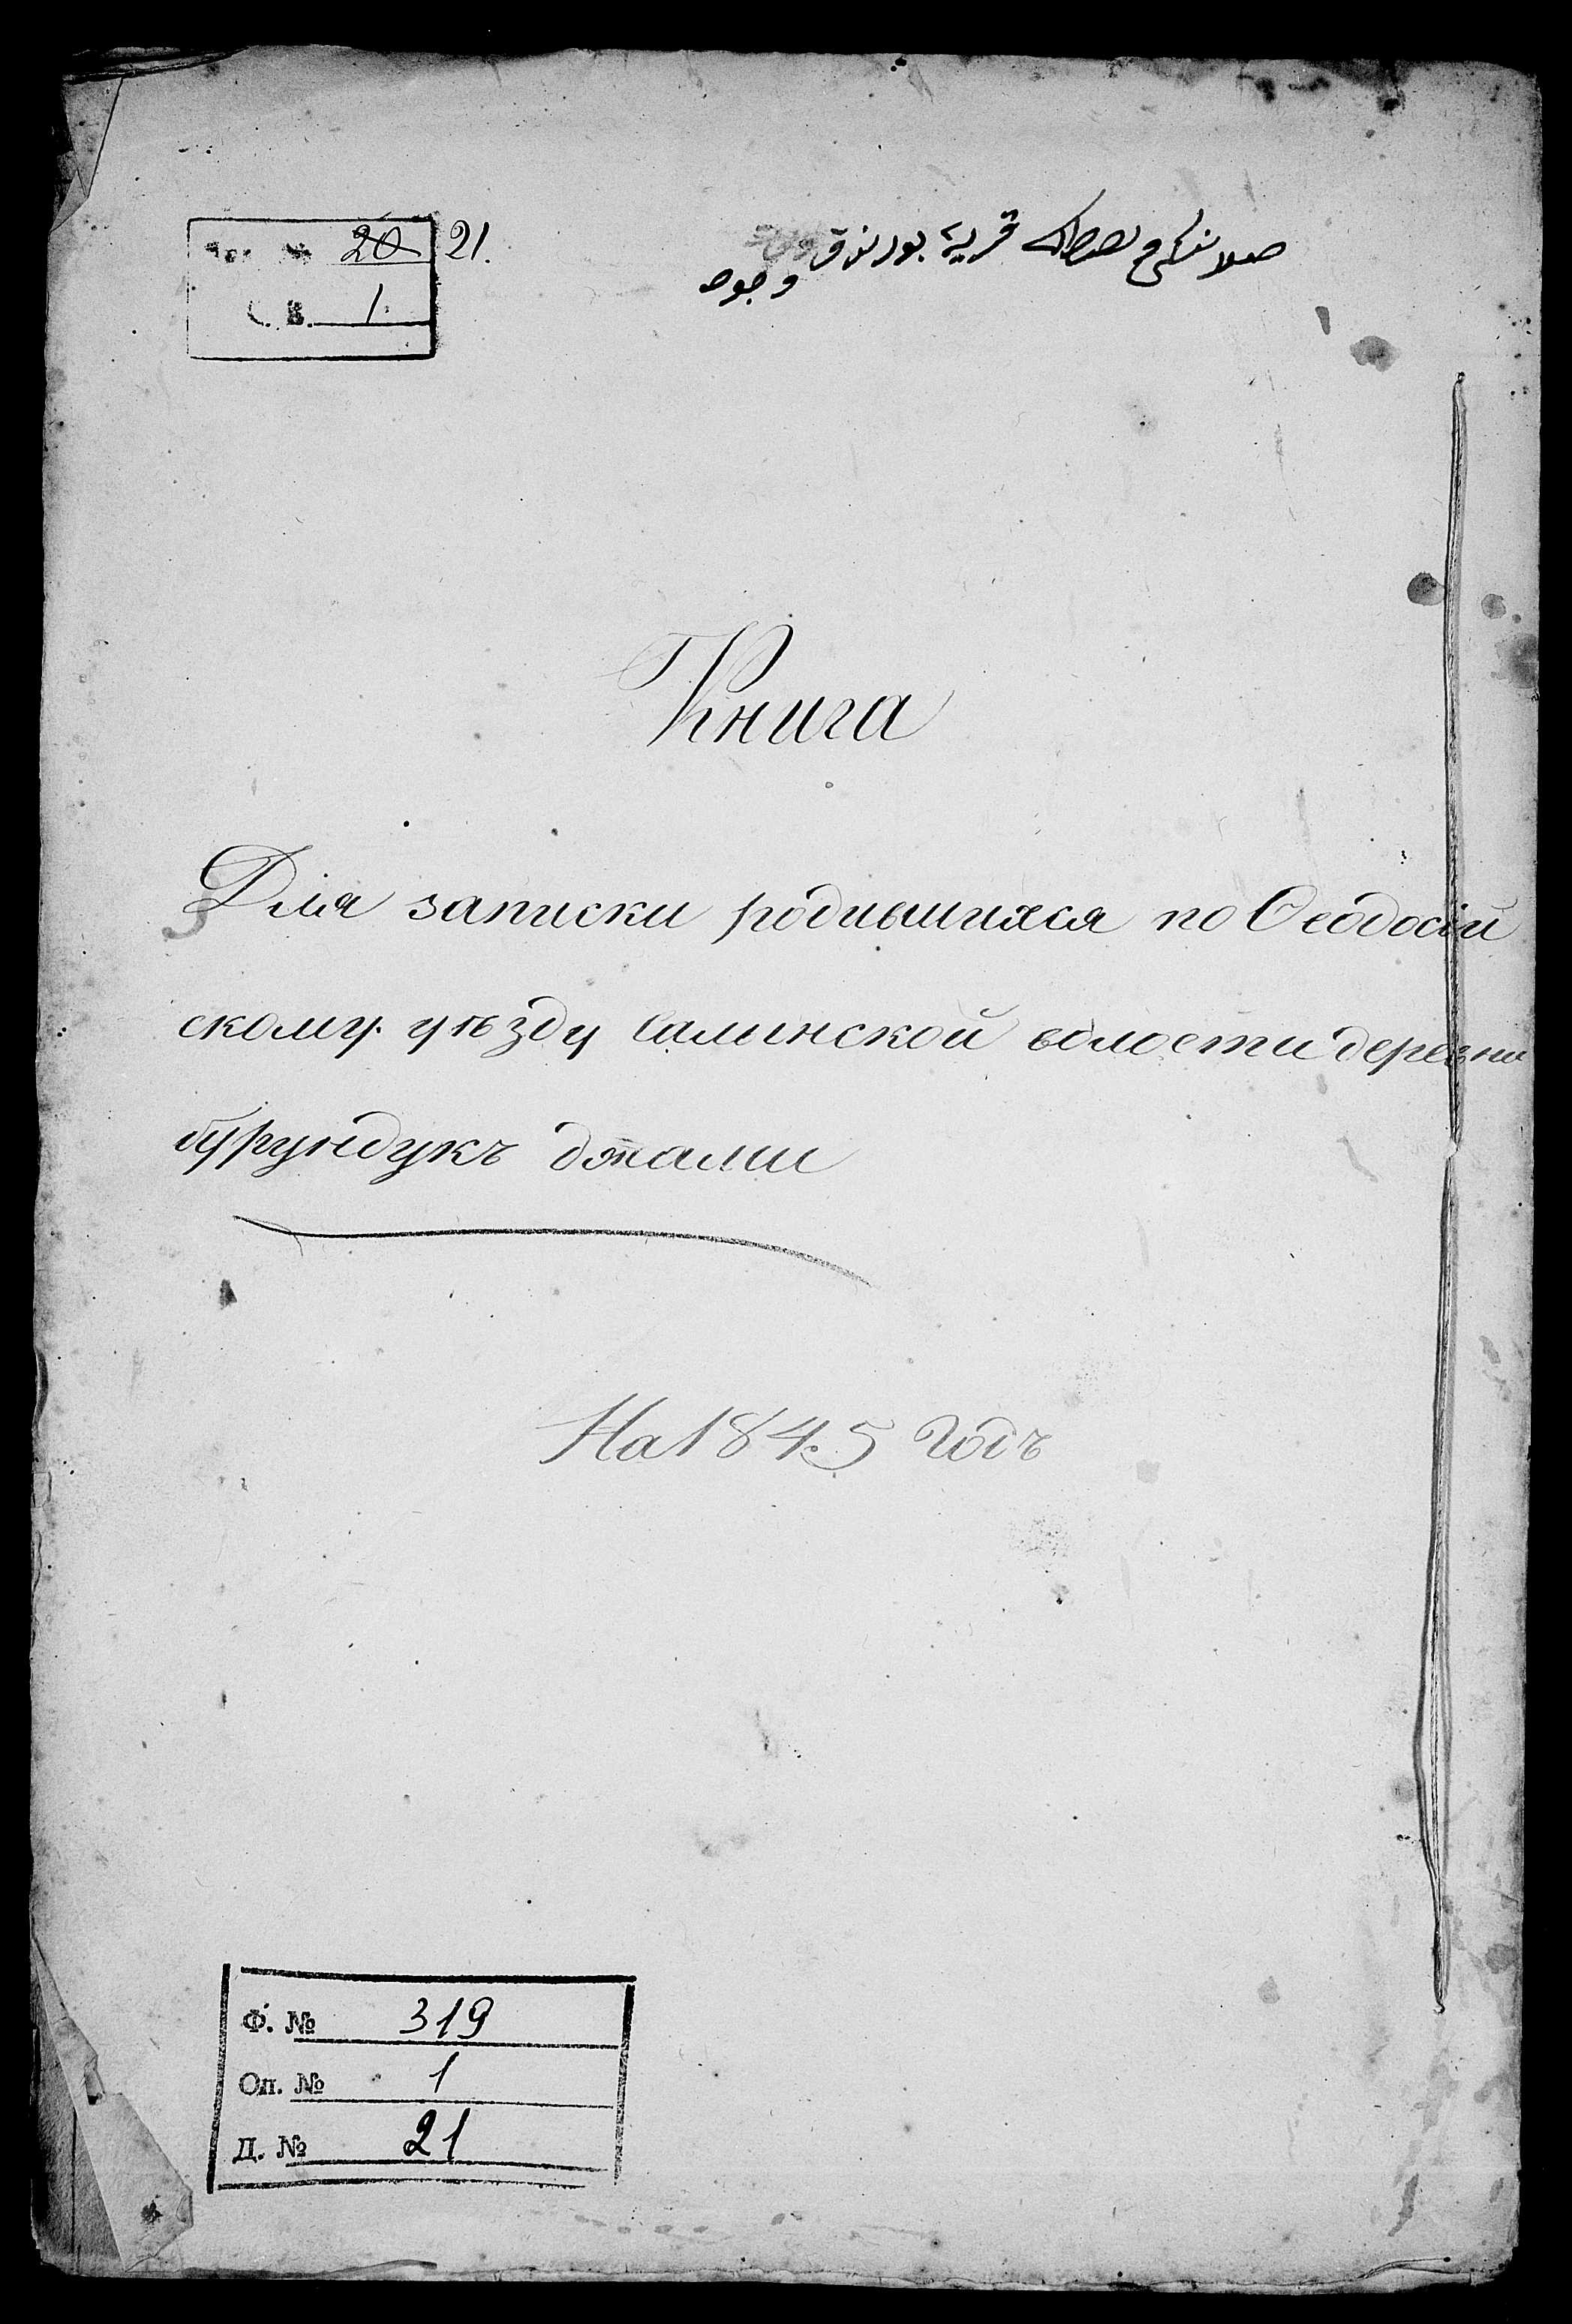 20 21.
С. В. 1
قرية بورندق
Книга
Для записки родившихся по Ѳеодосій
скому уѣзду Салынской волости деревни
бурундукъ джами
На 1845 Годъ
Ф. № 319
Оп. № 1
Д. № 21